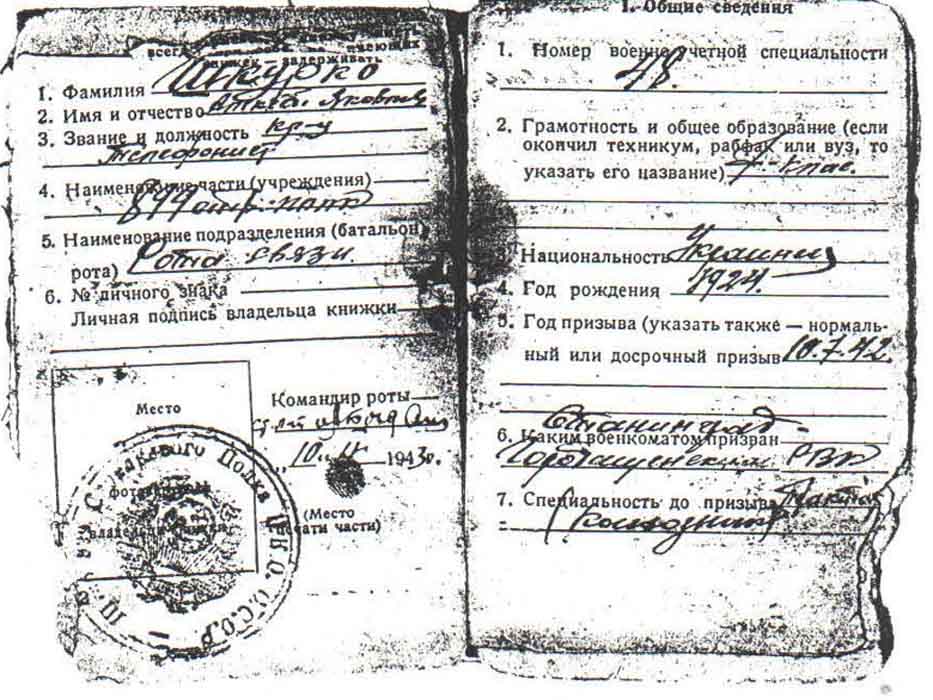 всегда
книжек — задерживать
1. Фамилия Шкурко
2. Имя и отчество Яковлев
3. Звание и должность кр-ц
телефонист
4. Наименование части (учреждения)
899 стр. полк
5. Наименование подразделения (батальон,
рота) Рота связи
6. № личного знака
Личная подпись владельца книжки
Место
фотокарточки
владельца
Командир роты
10 1943г.
(Место
печати части)
Стрелкового Полка Н.К.О. С.С.С.Р.
2
I. Общие сведения
1. Номер военно-учетной специальности
2. Грамотность и общее образование (если
окончил техникум, рабфак или вуз, то
указать его название) 7 клас.
3. Национальность Украинец
4. Год рождения 1924
5. Год призыва (указать также — нормаль-
ный или досрочный призыв 10.7.42.
6. Каким военкоматом призван
РВК
7. Специальность до призыва
(колхозник)